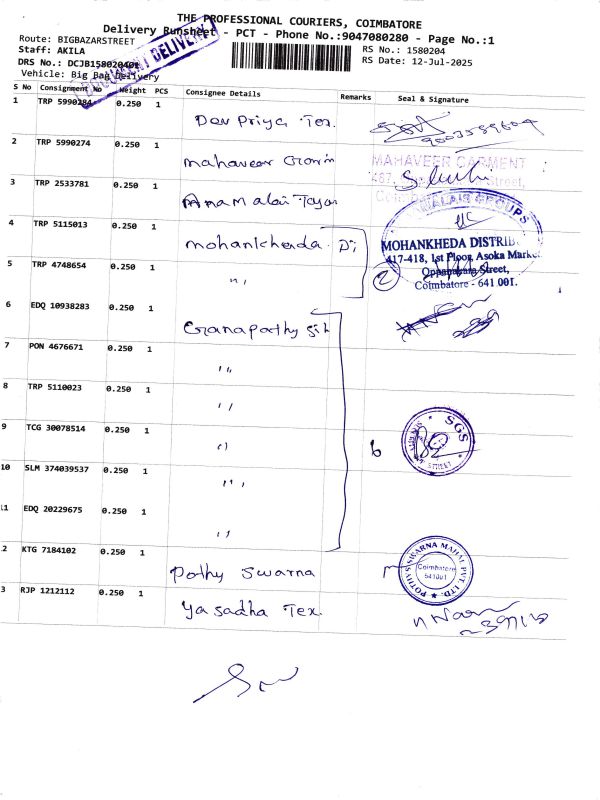 THE PROFESSIONAL COURIERS, COIMBATORE
Delivery Runsheet - PCT - Phone No.:9047080280 - Page No.:1
Route: BIGBAZARSTREET
RS No.: 1580204
Staff: AKILA
RS Date: 12-Jul-2025
DRS No.: DCJB15802040
Vehicle: Big Bag Delivery
DOCUMENT DELIVERY
S No Consignment No Weight PCS Consignee Details Remarks Seal & Signature
1 TRP 5990284 0.250 1 Dev Priya Tex.
9003559604
2 TRP 5990274 0.250 1 mahaveer
MAHAVEER GARMENT
Street,
3 TRP 2533781 0.250 1 Anamalai
GROUPS
4 TRP 5115013 0.250 1 mohankheda Di
MOHANKHEDA DISTRIB
417-418, 1st Floor, Asoka Market
5 TRP 4748654 0.250 1 "
2
Oppanakara Street,
Coimbatore - 641 001.
6 EDQ 10938283 0.250 1 Ganapathy Silk
7 PON 4676671 0.250 1 "
8 TRP 5110023 0.250 1 "
9 TCG 30078514 0.250 1 "
6
SGS
STREET
10 SLM 374039537 0.250 1 "
11 EDQ 20229675 0.250 1 "
2 KTG 7184102 0.250 1 Pothy Swarna
POTHYS SWARNA MAHAL PVT. LTD.
Coimbatore
641001
3 RJP 1212112 0.250 1 Yasadha Tex.